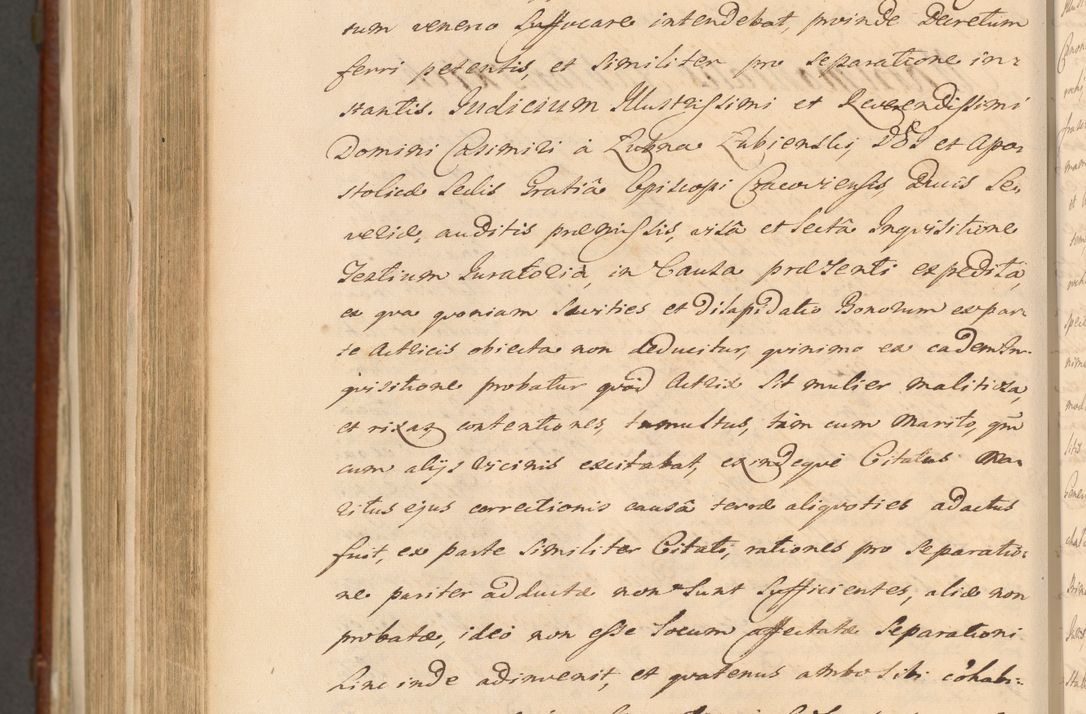 tum veneno suffocare intendebat, proinde Decretum
ferri petentis, et similiter pro separatione in:
stantis. Judicium Illustrissimi et Reverendissimi
Domini Casimiri à Lubna Lubienski, DEi et Apo:
stolicæ Sedis Gratiâ Episcopi Cracoviensis, Ducis Se:
veriæ, auditis præmissis, visâ et lectâ Inquisitione
Testium Juratoria, in Causa præsenti expedita,
ex qua quoniam Sævities et Disapidatio Bonorum ex par:
te Actricis obiecta non deducitur, quinimo ex eadem In:
quisitione probatur quòd Actrix sit mulier malitiosa,
et rixas, contentiones, tumultus, tàm cum Marito, qm̄
cum alijs vicinis excitabat, exindeque Citatus Ma:
ritus ejus correctionis causâ terræ aliquoties adactus
fuit, ex parte similiter Citati, rationes pro separatio:
ne pariter adductæ non sunt sufficientes, aliæ non
probatæ, ideò non esse locum affectatæ separationi
hinc inde adinvenit, et quatenus ambo sibi cohabi: